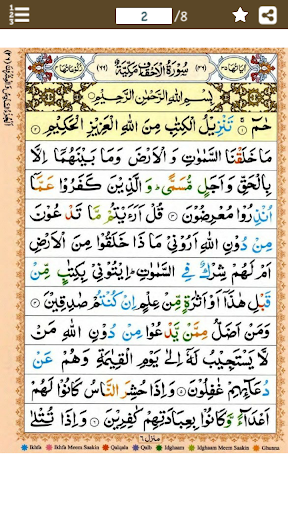 2 /8
سُوْرَةُ الْاَحْقَافِ مَكِّيَّةٌ
بِسْمِ اللّٰهِ الرَّحْمٰنِ الرَّحِيْمِ
حٰمٓ ۚ تَنْزِيْلُ الْكِتٰبِ مِنَ اللّٰهِ الْعَزِيْزِ الْحَكِيْمِ
مَا خَلَقْنَا السَّمٰوٰتِ وَ الْاَرْضَ وَمَا بَيْنَهُمَاۤ اِلَّا
بِالْحَقِّ وَاَجَلٍ مُّسَمًّى ؕ وَ الَّذِيْنَ كَفَرُوْا عَمَّاۤ
اُنْذِرُوْا مُعْرِضُوْنَ قُلْ اَرَءَيْتُمْ مَّا تَدْعُوْنَ
مِنْ دُوْنِ اللّٰهِ اَرُوْنِيْ مَا ذَا خَلَقُوْا مِنَ الْاَرْضِ
اَمْ لَهُمْ شِرْكٌ فِي السَّمٰوٰتِ ؕ اِيْتُوْنِيْ بِكِتٰبٍ مِّنْ
قَبْلِ هٰذَاۤ اَوْ اَثٰرَةٍ مِّنْ عِلْمٍ اِنْ كُنْتُمْ صٰدِقِيْنَ
وَمَنْ اَضَلُّ مِمَّنْ يَّدْعُوْا مِنْ دُوْنِ اللّٰهِ مَنْ
لَّا يَسْتَجِيْبُ لَهٗۤ اِلٰى يَوْمِ الْقِيٰمَةِ وَهُمْ عَنْ
دُعَآئِهِمْ غٰفِلُوْنَ وَاِذَا حُشِرَ النَّاسُ كَانُوْا لَهُمْ
اَعْدَآءً وَّكَانُوْا بِعِبَادَتِهِمْ كٰفِرِيْنَ وَاِذَا تُتْلٰى
منزل ٦
Ikhfa Ikhfa Meem Saakin Qalqala Qalb Idghaam Idghaam Meem Saakin Ghunna